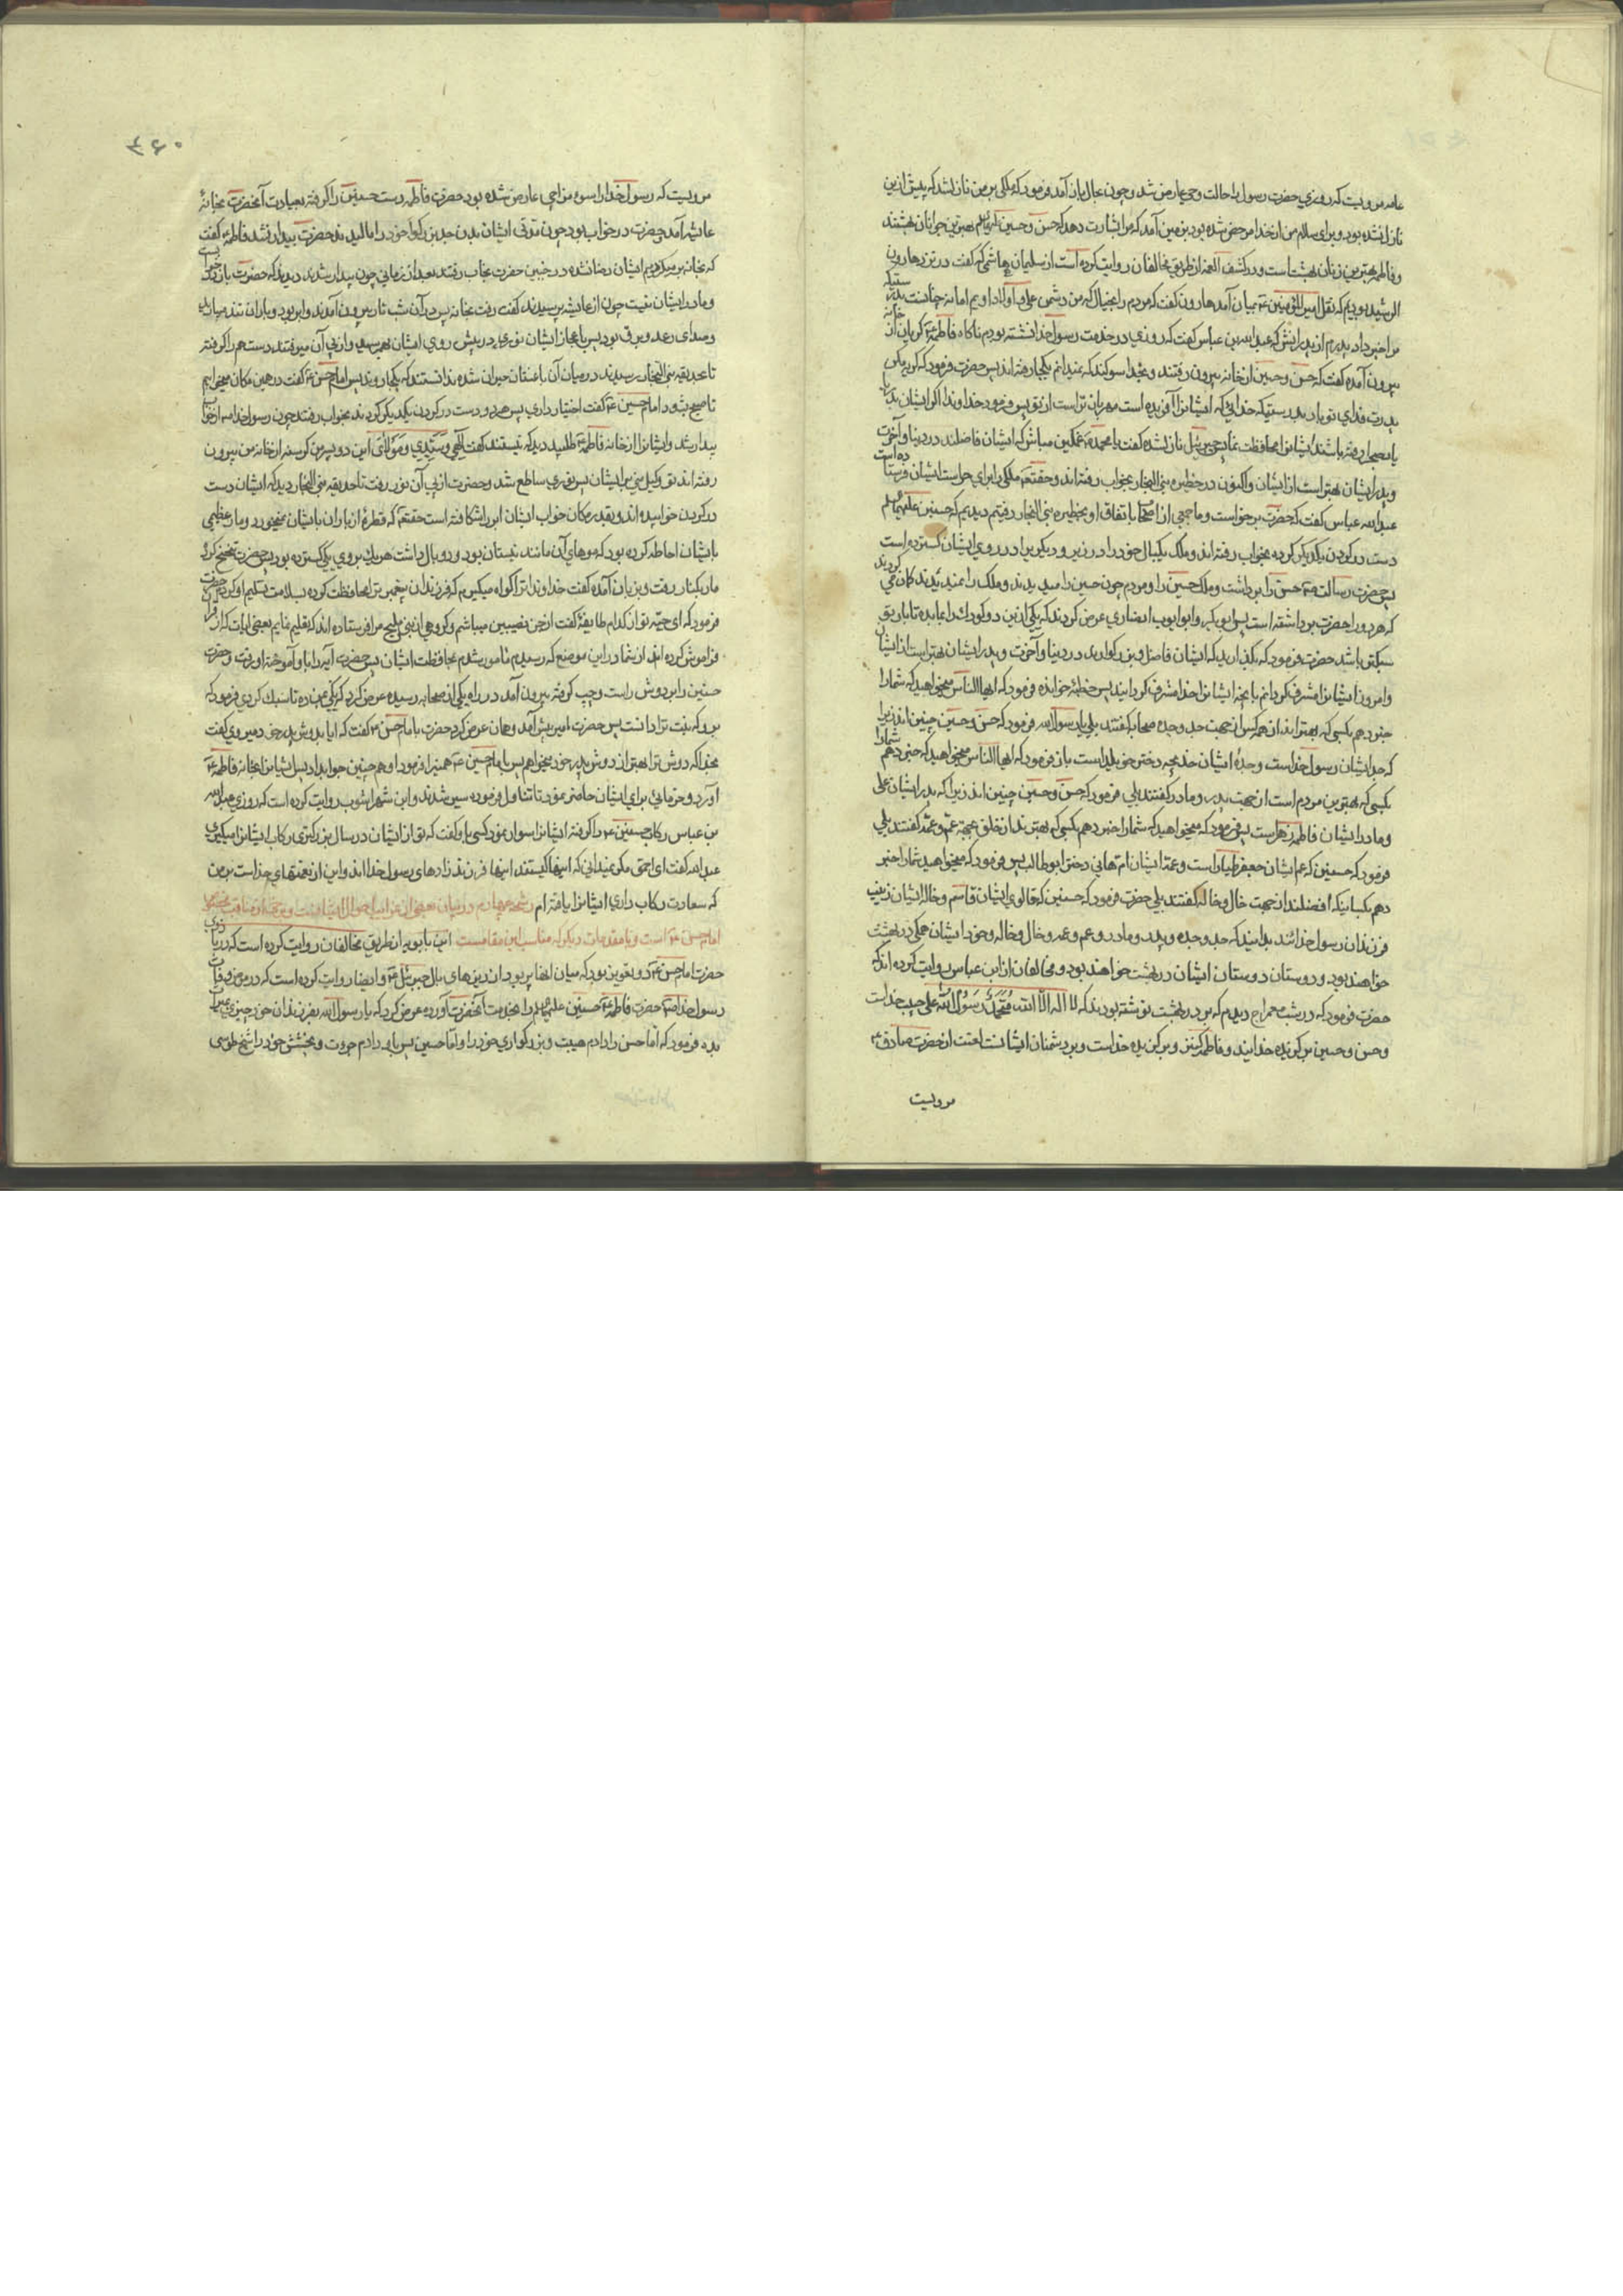 عامه مرویست که روزی حضرت رسول را حالت وحی عارض شد و چون بحال باز آمد فرمود که ملکی بر من نازل شد که پیش ازین
نازل نشده بود و برای سلام من از خدا مرخص شده بود بزمین آمد که مرا بشارت دهد که حسن و حسین بهترین جوانان بهشتند
و فاطمه بهترین زنان بهشت است و در کشف الغمه از طریق مخالفان روایت کرده است از سلیمان هاشمی که گفت در نزد هارون
الرشید بودیم که نقل امیر المؤمنین ع بمیان آمد هارون گفت که مردم را بخیال که من دشمن علی و اولاد اویم اما نه چنانست بدرستیکه
مرا خبر داد پدرم از پدرانش که عبد الله بن عباس گفت که روزی در خدمت رسول خدا نشسته بودم ناگاه فاطمه ع گریان از خانه
بیرون آمده گفت که حسن و حسین از خانه بیرون رفتند و بخدا سوکند که نمیدانم بکجا رفته اند پس حضرت فرمود که گریه مکن
پدرت فدای تو باد بدرستیکه خدایی که ایشانرا آفریده است مهربان تر است از تو پس فرمود خداوندا اگر ایشان بدریا
یا بصحرا رفته باشند ایشانرا محافظت نما پس جبرئیل نازل شده گفت یا محمد ص غمگین مباش که ایشان فاضلند در دنیا و آخرت
و پدر ایشان بهتر است از ایشان و اکنون در حظیره بنی النجار بخواب رفته اند و حقتعه ملکی را برای حراست ایشان فرستاده است
عبد الله عباس گفت که حضرت برخواست و ما جمعی از اصحاب باتفاق او بحظیره بنی النجار رفتیم دیدیم که حسنین علیهما السلام
دست در گردن یکدیگر کرده بخواب رفته اند و ملک یکبال خود را در زیر و دیگری را در روی ایشان گسترده است
پس حضرت رسالت ص حسن را برداشت و ملک حسین را و مردم چون حسین را میدیدند و ملک را نمیدیدند گمان می کردند
که هر دو را حضرت برداشته است پس ابو بکر و ابو ایوب انصاری عرض کردند که یکی ازین دو کودک را بما بده تا بار تو
سبکتر باشد حضرت فرمود که بگذارید که ایشان فاضل و بزرگوارند در دنیا و آخرت و پدر ایشان بهتر است از ایشان
و امروز ایشانرا مشرف گردانم بانچه ایشانرا خدا مشرف گردانید پس خطبه خوانده فرمود که ایها الناس میخواهید که شما را
خبر دهم بکسی که بهترند از همه کس از جهت جد و جده صحابه گفتند بلی یا رسول الله فرمود که حسن و حسین چنین اند زیرا
که جد ایشان رسول خداست و جدۀ ایشان خدیجه دختر خویلد است باز فرمود که ایها الناس میخواهید که خبر دهم شما را
بکسی که بهترین مردم است از جهت پدر و مادر گفتند بلی فرمود که حسن و حسین چنین اند زیرا که پدر ایشان علی
و مادر ایشان فاطمه زهراست پس فرمود که میخواهید که شما را خبر دهم بکسی که بهترند از خلق بجهت عم و عمه گفتند بلی
فرمود که حسنین که عم ایشان جعفر طیار است و عمۀ ایشان ام هانی دختر ابو طالب پس فرمود که میخواهید شما را خبر
دهم بکسانیکه افضلند از جهت خال و خاله گفتند بلی حضرت فرمود که حسنین که خالوی ایشان قاسم و خاله ایشان زینب
فرزندان رسول خدا اند بدانید که جد و جده و پدر و مادر و عم و عمه و خال و خاله و خود ایشان همگی در بهشت
خواهند بود و دوستان دوستان ایشان در بهشت خواهند بود و مخالفان از ابن عباس روایت کرده اند که
حضرت فرمود که در شب معراج دیدم که بر در بهشت نوشته بودند که لا اله الا الله محمد رسول الله علی حبیب خداست
و حسن و حسین برگزیده خدایند و فاطمه کنیز و برگزیده خداست و بر دشمنان ایشانست لعنت از حضرت صادق ع
مرویست
۴۶۰
مرویست که رسول خدا را سوء مزاجی عارض شده بود حضرت فاطمه دست حسنین را گرفته بعیادت آنحضرت بخانۀ
عایشه آمد حضرت در خواب بود چون مدتی ایشان بدن جد بزرگوار خود را مالیدند حضرت بیدار نشد فاطمه گفت
که بخانه برمیگردیم ایشان رضا نشده در جنبین حضرت بخواب رفتند بعد از زمانی چون بیدار شدند دیدند که حضرت باز در خواب است
و مادر ایشان نیست چون از عایشه پرسیدند گفت رفت بخانه پس در آن شب تار بیرون آمدند و ابر بود و باران تند میبارید
و صدای رعد و برق بود پس باعجاز ایشان نوری در پیش روی ایشان بهمرسید و از پی آن میرفتند دست هم را گرفته
تا بحدیقه بنی النجار رسیدند در میان آن باغستان حیران شده ندانستند که بکجا روند پس امام حسن ع گفت در همین مکان میخوابیم
تا صبح شود امام حسین ع گفت اختیار داری پس هر دو دست در گردن یکدیگر کردند بخواب رفتند چون رسول خدا ص از خواب
بیدار شد و ایشانرا از خانه فاطمه ع طلبید دید که نیستند گفت الهی و سیدی و مولائی این دو پسر من گرسنه از خانه من بیرون
رفته اند تو وکیل منی بر ایشان پس نوری ساطع شد و حضرت از پی آن نور رفت تا حدیقه بنی النجار دید که ایشان دست
در گردن خوابیده اند و بقدر مکان خواب ایشان ابر را شکافته است حقتعه که قطرۀ از باران بایشان نمیخورد و مار عظیمی
بایشان احاطه کرده بود که موهای آن مانند نیستان بود و دو بال داشت هر یک بروی یکی گسترده بود پس حضرت تنحنح کرد
مار بکنار رفت و بزبان آمده گفت خداوندا ترا گواه میگیرم که فرزندان پیغمبر ترا محافظت کرده بسلامت تسلیم او کردم حضرت
فرمود که ای حیه تو از کدام طایفۀ گفت از جن نصیبین میباشم و گروهی از بنی ملیح مرا فرستاده اند که تعلیم نمایم بعضی آیات که از قرآن
فراموش کرده اند از شما در این موضع که رسیدم مامور شدم بمحافظت ایشان پس حضرت آیه را باو آموخته او رفت و حضرت
حسنین را بر دوش راست و چپ گرفته بیرون آمد در راه یکی از صحابه رسیده عرض کرد که یکی بمن ده تا سبک گردی فرمود که
برو که نیت ترا دانست پس حضرت امیر پیش آمد و همان عرض کرد حضرت با امام حسن ع گفت که ایا بدوش پدر خود میروی گفت
بخدا که دوش ترا بهتر از دوش پدر خود میخواهم پس با امام حسین ع همینرا فرمود او هم چنین جواب داد پس ایشانرا بخانه فاطمه ع
آورد و خرمائی برای ایشان حاضر نمود تا تناول فرموده سیر شدند و ابن شهر اشوب روایت کرده است که روزی عبد الله
بن عباس رکاب حسنین ع را گرفته ایشانرا سوار نمود کسی باو گفت که تو از ایشان در سال بزرگتری رکاب ایشانرا میگیری
عبد الله گفت ای احمق مگر نمیدانی که اینها کیستند اینها فرزند زادهای رسول خدا اند و این از نعمتهای خداست بر من
که سعادت رکاب داری ایشانرا یافته ام رشحه چهارم در بیان
امام حسن ع است و با مقدمات دیگر که مناسب این مقامست ابن بابویه از طریق مخالفان روایت کرده است که در بازوی
حضرت امام حسن ع دو تعویذ بود که میان انها پر بود از ریزهای بال جبرئیل ع و ایضا روایت کرده است که در مرض وفات
رسول خدا ص حضرت فاطمه ع حسنین علیهما السلام را بخدمت آنحضرت آورده عرض کرد که یا رسول الله بفرزندان خود چیزی میراث
بده فرمود که اما حسن را دادم هیبت و بزرگواری خود را و اما حسین پس باو دادم جرءت و بخشش خود را شیخ طوسی